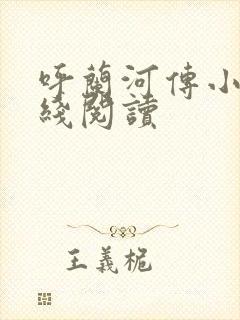 呼蘭河傳小
綫閱讀
王義桅